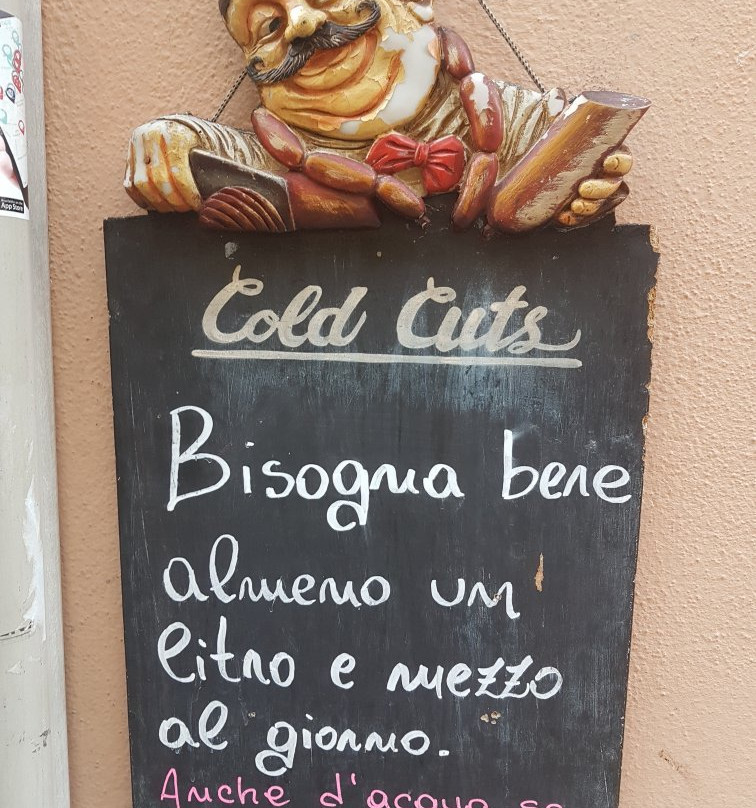 App Store
Cold Cuts
Bisogna bere
almeno un
litro e mezzo
al giorno.
Anche d'acqua se